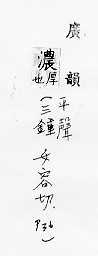 廣韻
平聲
濃厚也(三鍾女容切P36)